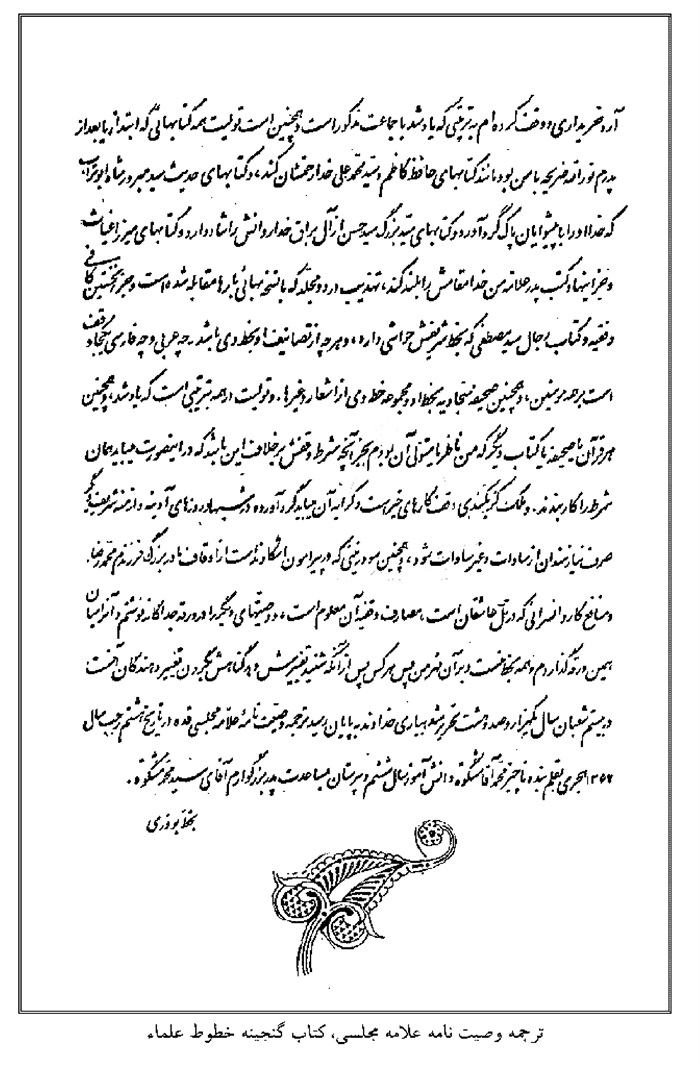 آرد خریداری و وقف کرده‌ام به ترتیبی که یاد شد با جماعت مذکور است و همچنین است تولیت همه کتابهائی که ابتدا یا بعد از
پدرم نورالله ضریحه با من بود مانند کتابهای حافظ کاظم و سید محمد علی خدا رحمتشان کند، و کتابهای حدیث سید میرور شاه ابوتراب
که خدا او را با پیشوایان پاک گرد آورد و کتابهای سید بزرگ سید حسن از آل براق خدا روانش را شاد دارد و کتابهای میرزا غیاث
و جز اینها و کتب پدر علامه من خدا مقامش را بلند کند، تهذیب در دو مجلد که با نسخه‌هائی بارها مقابله شده است و جزء نخستین کافی
و فقیه و کتاب رجال سید مصطفی که بخط شریفش حواشی دارد، و هر چه از تصانیف او بخط وی باشد چه عربی و چه فارسی همگی وقف
است بر همه مومنین، و همچنین صحیفه سجادیه بخط او و مجموعه خط وی از اشعار و غیرها. و تولیت در همه بترتیبی است که یاد شد، و همچنین
هر قرآن یا صحیفه یا کتاب دیگر که من ناظر یا متولی آن بودم بجز آنچه شرط وقفش بر خلاف این باشد که در اینصورت میباید همان
شرط را کار بندند. و ملک وقف کارهای خیر است و کرایه آن میباید گرد آورده در شبها و روزهای آدینه و ازمنه شریفه دیگر
صرف نیازمندان از سادات و غیر سادات شود، و همچنین که در پیرامون است از اوقاف مادر بزرگ فرزندم محمد رضا.
و منافع کاروانسرائی که در تل عاشقان است، مصارف وقفیه آن معلوم است، و وصیتهای دیگر را در ورقه جداگانه نوشتم و آنرا میان
همین ورقه گذاردم و همه بخط منست و بر آن مهر من پس هر کس پس از آنکه شنید تغییرش دهد گناهش بگردن تغییر دهندگان است
در بیستم شعبان سال یکهزار و صد و هشت تحریر شد بیاری خداوند به پایان رسید ترجمه وصیت نامهٔ علامه مجلسی قده در تاریخ هشتم رجب سال
۱۳۵۶ هجری بقلم بنده ناچیز محمد آقا مشکوة دانش آموز سال ششم دبیرستان بمساعدت پدر بزرگوارم آقای سید محمد مشکوة.
بخط بوذری
ترجمه وصیت نامه علامه مجلسی، کتاب گنجینه خطوط علماء